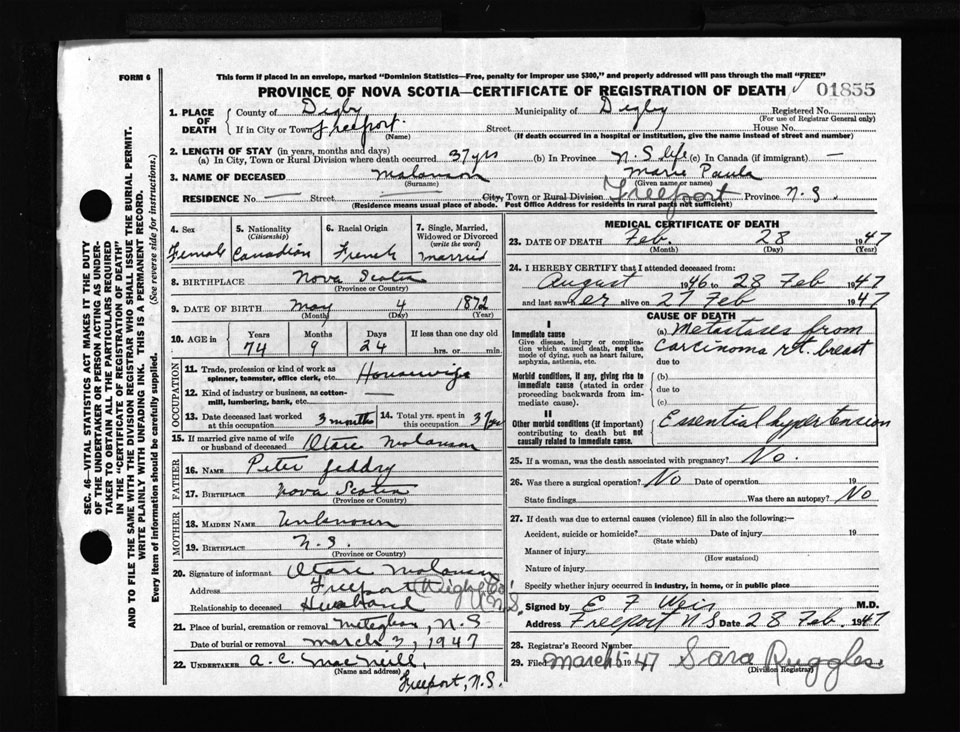 FORM 6
This form if placed in an envelope, marked "Dominion Statistics—Free, penalty for improper use $300," and properly addressed will pass through the mail "FREE"
PROVINCE OF NOVA SCOTIA—CERTIFICATE OF REGISTRATION OF DEATH
01855
1. PLACE OF DEATH
County of Digby Municipality of Digby Registered No.
(For use of Registrar General only)
If in City or Town Freeport. Street House No.
(Name) (If death occurred in a hospital or institution, give the name instead of street and number)
2. LENGTH OF STAY (in years, months and days)
(a) In City, Town or Rural Division where death occurred 37 yrs (b) In Province N.S life (c) In Canada (if immigrant) —
3. NAME OF DECEASED Melanson Marie Paula
(Surname) (Given name or names)
RESIDENCE No. — Street — City, Town or Rural Division Freeport Province N.S.
(Residence means usual place of abode. Post Office Address for residents in rural parts not sufficient)
4. Sex 5. Nationality 6. Racial Origin 7. Single, Married,
(Citizenship) Widowed or Divorced
(write the word)
Female Canadian French Married
8. BIRTHPLACE Nova Scotia
(Province or Country)
9. DATE OF BIRTH May 4 1872
(Month) (Day) (Year)
10. AGE in Years Months Days If less than one day old
74 9 24 hrs. or min.
OCCUPATION
11. Trade, profession or kind of work as
spinner, teamster, office clerk, etc. Housewife
12. Kind of industry or business, as cotton-
mill, lumbering, bank, etc. —
13. Date deceased last worked 14. Total yrs. spent in
at this occupation 3 months this occupation 37 yrs
15. If married give name of wife
or husband of deceased Otare Melanson
FATHER
16. NAME Peter Jeddry
17. BIRTHPLACE Nova Scotia
(Province or Country)
MOTHER
18. MAIDEN NAME Unknown
19. BIRTHPLACE N.S.
(Province or Country)
20. Signature of informant Otare Melanson
Address Freeport (Digby Co. N.S.
Relationship to deceased Husband
21. Place of burial, cremation or removal Meteghan, N.S
Date of burial or removal March 3, 1947
22. UNDERTAKER A. C. MacNeill,
(Name and address)
Freeport, N.S.
MEDICAL CERTIFICATE OF DEATH
23. DATE OF DEATH Feb. 28 1947
(Month) (Day) (Year)
24. I HEREBY CERTIFY that I attended deceased from:
August 1946 to 28 Feb 1947
and last saw her alive on 27 Feb 1947
CAUSE OF DEATH
I
Immediate cause
Give disease, injury or complica-
tion which caused death, not the
mode of dying, such as heart failure,
asphyxia, asthenia, etc.
(a) Metastases from
carcinoma rt. breast
due to
Morbid conditions, if any, giving rise to
immediate cause (stated in order
proceeding backwards from im-
mediate cause).
(b)
due to
(c)
II
Other morbid conditions (if important)
contributing to death but not
causally related to immediate cause.
Essential hypertension
25. If a woman, was the death associated with pregnancy? No.
26. Was there a surgical operation? No Date of operation 19
State findings Was there an autopsy? No
27. If death was due to external causes (violence) fill in also the following:—
Accident, suicide or homicide? Date of injury 19
(State which)
Manner of injury
(How sustained)
Nature of injury
Specify whether injury occurred in industry, in home, or in public place
Signed by E F Weir M.D.
Address Freeport N S Date 28 Feb. 1947
28. Registrar's Record Number
29. Filed March 5 1947 Sara Ruggles
(Division Registrar)
SEC. 46—VITAL STATISTICS ACT MAKES IT THE DUTY
OF THE UNDERTAKER OR PERSON ACTING AS UNDER-
TAKER TO OBTAIN ALL THE PARTICULARS REQUIRED
IN THE "CERTIFICATE OF REGISTRATION OF DEATH"
AND TO FILE THE SAME WITH THE DIVISION REGISTRAR WHO SHALL ISSUE THE BURIAL PERMIT.
WRITE PLAINLY WITH UNFADING INK. THIS IS A PERMANENT RECORD.
Every item of information should be carefully supplied. (See reverse side for instructions.)